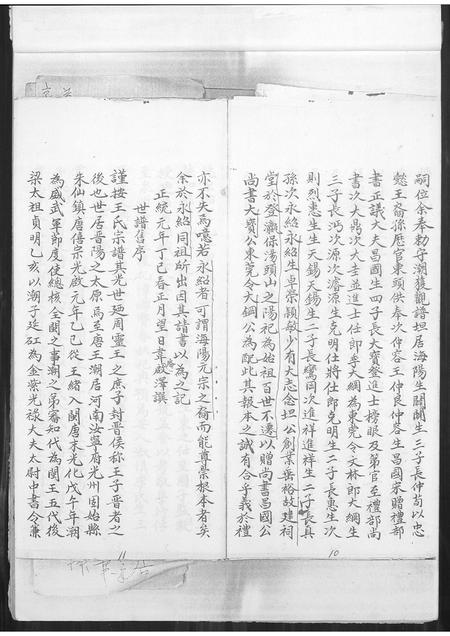 嗣位余奉勅守潮獲觀譜坦居海陽生關關生三子長仲荀以忠
懿王裔孫歷官東頭供奉次仲容王仲良仲容生昌國累贈禮部
書正議大夫昌國生四子長大寶登進士榜眼及第官至禮部尚
書次大鼎次大壬並進士仕郎季大綱為東莞令文林郎大綱生
三子長鴻次源次濬源生克明仕將仕郎克明生二子長惠生次
則烈惠生生天錫天錫生二子長鸞同次進祥進祥生二子長真
孫次永紹永紹生卓榮穎敏少有大志念坦公創業垂裕故建祠
堂於登瀛保湯頭山之陽祀為始祖百世不遷以贈尚書昌國公
尚書大寶公東莞令大綱公為配此其報本之誠有合乎義於禮
10
亦不失焉噫若永紹者可謂海陽元宗之裔而能尊崇根本者矣
余於永紹同祖所出因其請書以為之記
正統元年丁巳春正月望日韋菴澤撰
世譜舊序
謹按王氏宗譜其先世廼周靈王之庶子封晉侯稱王子晉者之
後也世居晉陽之太原焉至唐王潮居河南汝寧府光州固始縣
朱仙鎮唐僖宗光啟元年乙巳從王緒入閩唐末光化戊午年潮
為威武軍節度使總核全閩之事潮之弟審知代為閩王五代後
梁太祖貞明乙亥以潮子延紅為金紫光祿大夫太尉中書令兼
11